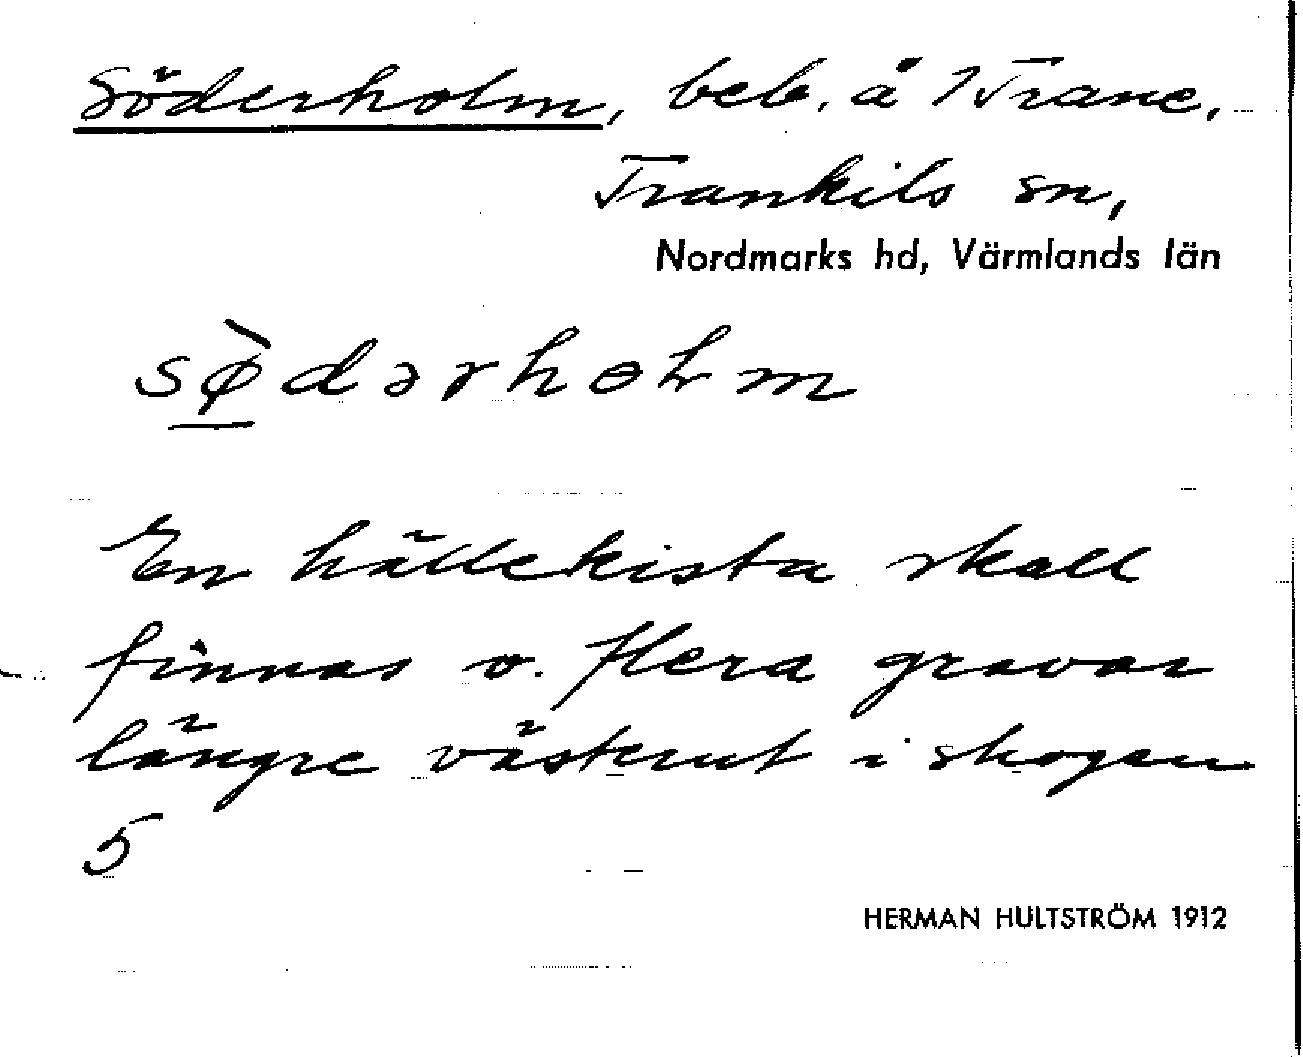 Söderholm, beb. å 1 Trane,
Trankils sn,
Nordmarks hd, Värmlands län
sø̀dərhoɫm
En hällekista skall
finnas o. flera gravar
längre västerut i skogen
5
HERMAN HULTSTRÖM 1912